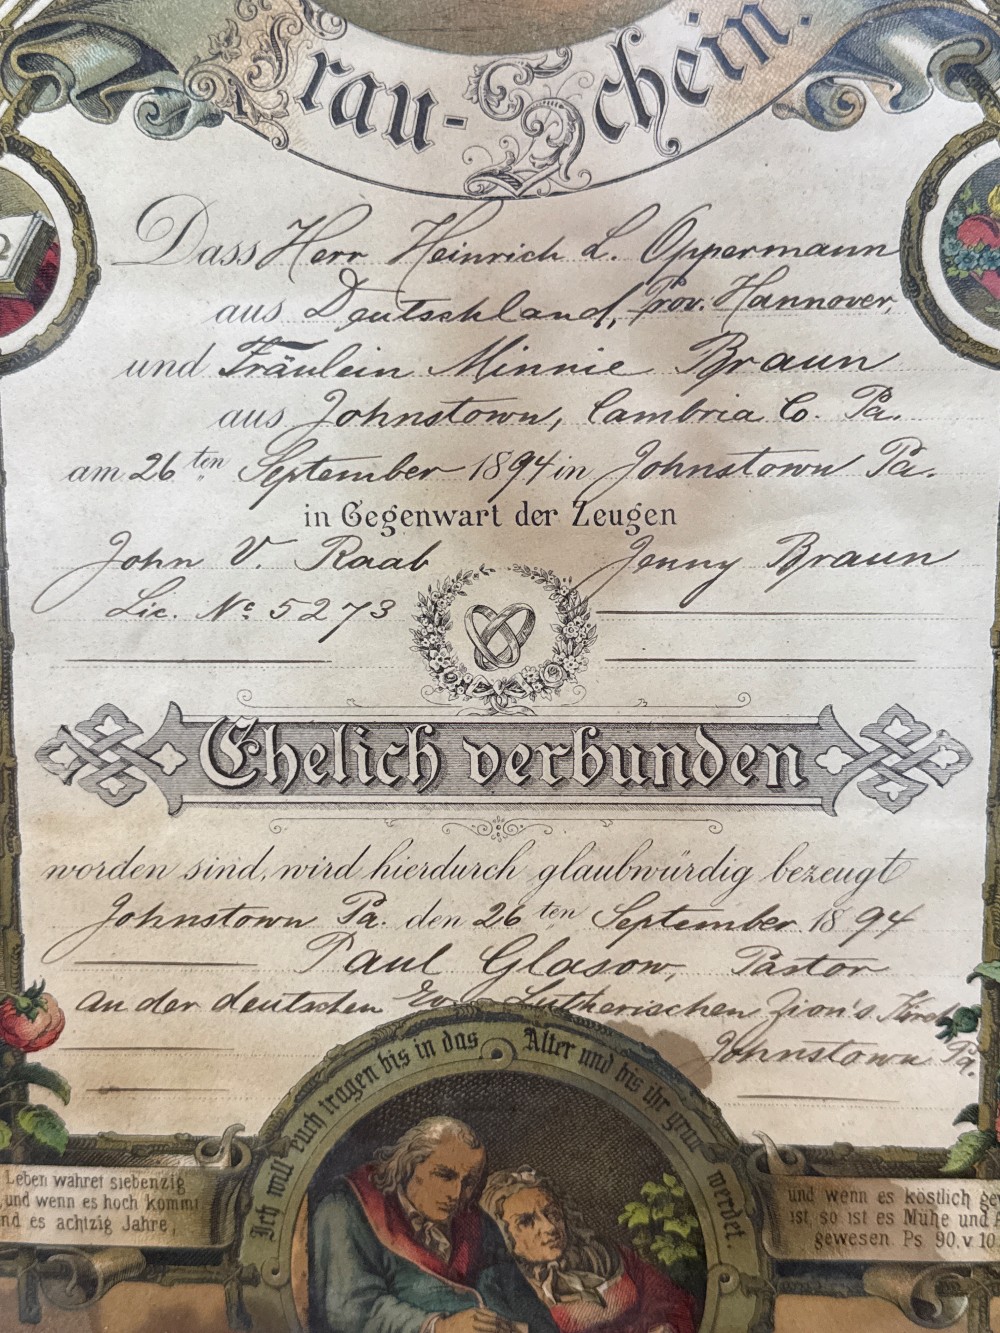 Trau-Schein.
Dass Herr Heinrich L. Oppermann
aus Deutschland, Prov. Hannover,
und Fräulein Minnie Braun
aus Johnstown, Cambria Co. Pa.
am 26ten September 1894 in Johnstown Pa.
in Gegenwart der Zeugen
John V. Raab Jenny Braun
Lic. No 5273
Ehelich verbunden
worden sind, wird hierdurch glaubwürdig bezeugt
Johnstown Pa. den 26ten September 1894
Paul Glasow, Pastor
an der deutschen Ev. Lutherischen Zion's Kirch
Johnstown Pa.
Ich will euch tragen bis in das Alter und bis ihr grau werdet.
Leben wahret siebenzig
und wenn es hoch kommt
es achtzig Jahre,
und wenn es köstlich
ist, so ist es Mühe und
gewesen Ps. 90. v 10
2